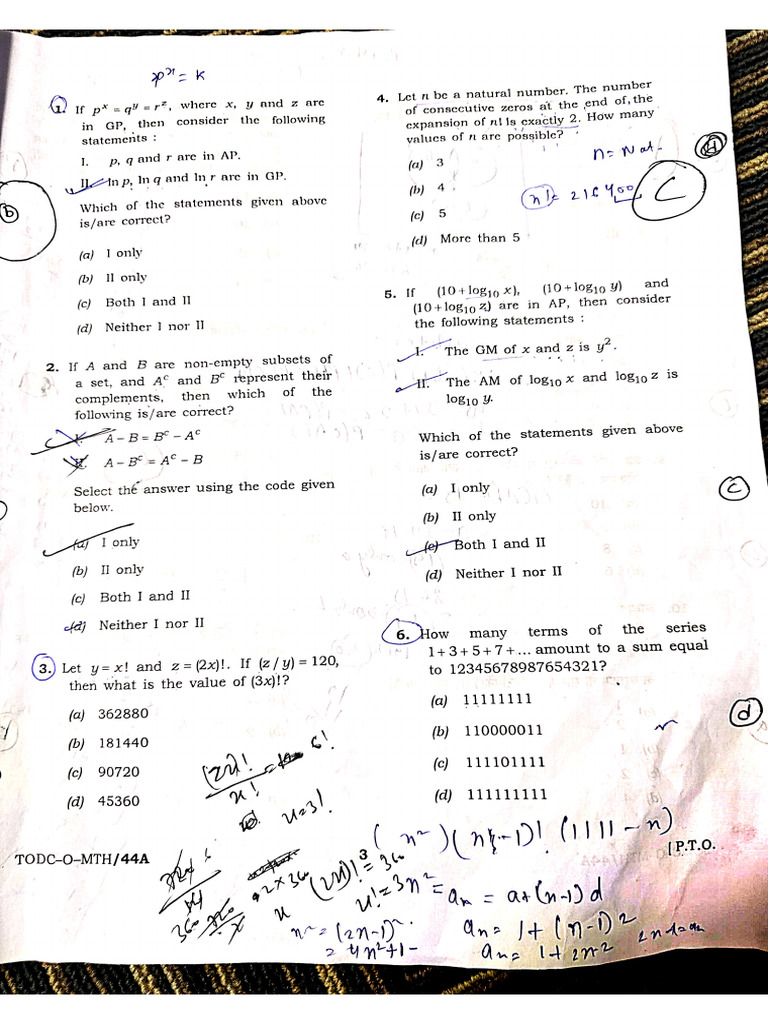 pˣ = K
1. If pˣ = qʸ = rᶻ, where x, y and z are
in GP, then consider the following
statements :
I. p, q and r are in AP.
II. ln p, ln q and ln r are in GP.
Which of the statements given above
is/are correct?
b
(a) I only
(b) II only
(c) Both I and II
(d) Neither I nor II
2. If A and B are non-empty subsets of
a set, and Aᶜ and Bᶜ represent their
complements, then which of the
following is/are correct?
I. A – B = Bᶜ – Aᶜ
II. A – Bᶜ = Aᶜ – B
Select the answer using the code given
below.
(a) I only
(b) II only
(c) Both I and II
(d) Neither I nor II
3. Let y = x! and z = (2x)!. If (z / y) = 120,
then what is the value of (3x)!?
(a) 362880
(b) 181440
(c) 90720
(d) 45360
(2x)!
x!
6!
x=3!
TODC-O-MTH/44A
4. Let n be a natural number. The number
of consecutive zeros at the end of the
expansion of n! is exactly 2. How many
values of n are possible?
(a) 3
n = Nat.
d
(b) 4
C
(c) 5
(d) More than 5
5. If (10 + log₁₀ x), (10 + log₁₀ y) and
(10 + log₁₀ z) are in AP, then consider
the following statements :
I. The GM of x and z is y².
II. The AM of log₁₀ x and log₁₀ z is
log₁₀ y.
Which of the statements given above
is/are correct?
(a) I only
C
(b) II only
(c) Both I and II
(d) Neither I nor II
6. How many terms of the series
1 + 3 + 5 + 7 + ... amount to a sum equal
to 12345678987654321?
(a) 11111111
d
(b) 110000011
(c) 111101111
(d) 111111111
[ P.T.O.
2x36
aₙ = a+(n-1)d
n² = (2n-1)²
aₙ = 1+(n-1)2
= 4n²+1-
aₙ = 1+2n-2